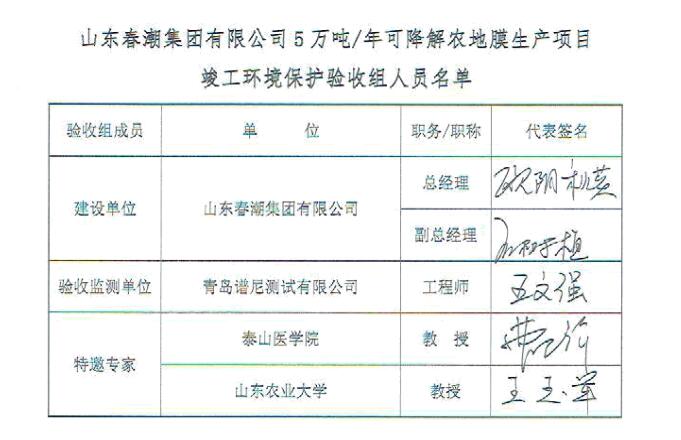 山东春潮集团有限公司5万吨/年可降解农地膜生产项目
竣工环境保护验收组人员名单
验收组成员 单 位 职务/职称 代表签名
建设单位 山东春潮集团有限公司 总经理 欧阳
副总经理
验收监测单位 青岛谱尼测试有限公司 工程师 王文强
特邀专家 泰山医学院 教 授
山东农业大学 教授 王玉